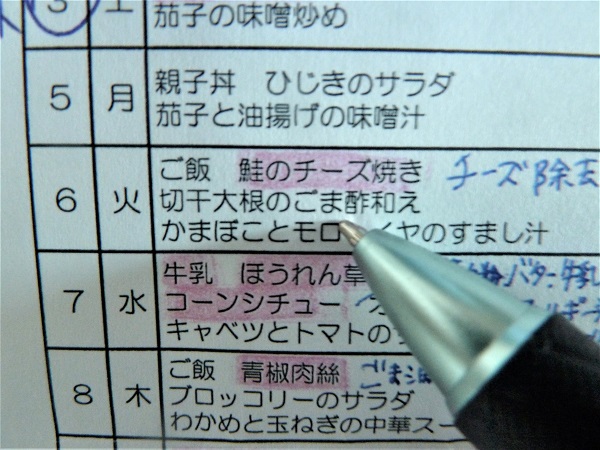 3 土
茄子の味噌炒め
5 月 親子丼 ひじきのサラダ
茄子と油揚げの味噌汁
6 火 ご飯 鮭のチーズ焼き チーズ除去
切干大根のごま酢和え
かまぼことモロ イヤのすまし汁
7 水 牛乳 ほうれん草 バター 牛乳
コーンシチュー
キャベツとトマトの
8 木 ご飯 青椒肉絲 ごま油
ブロッコリーのサラダ
わかめと玉ねぎの中華スー